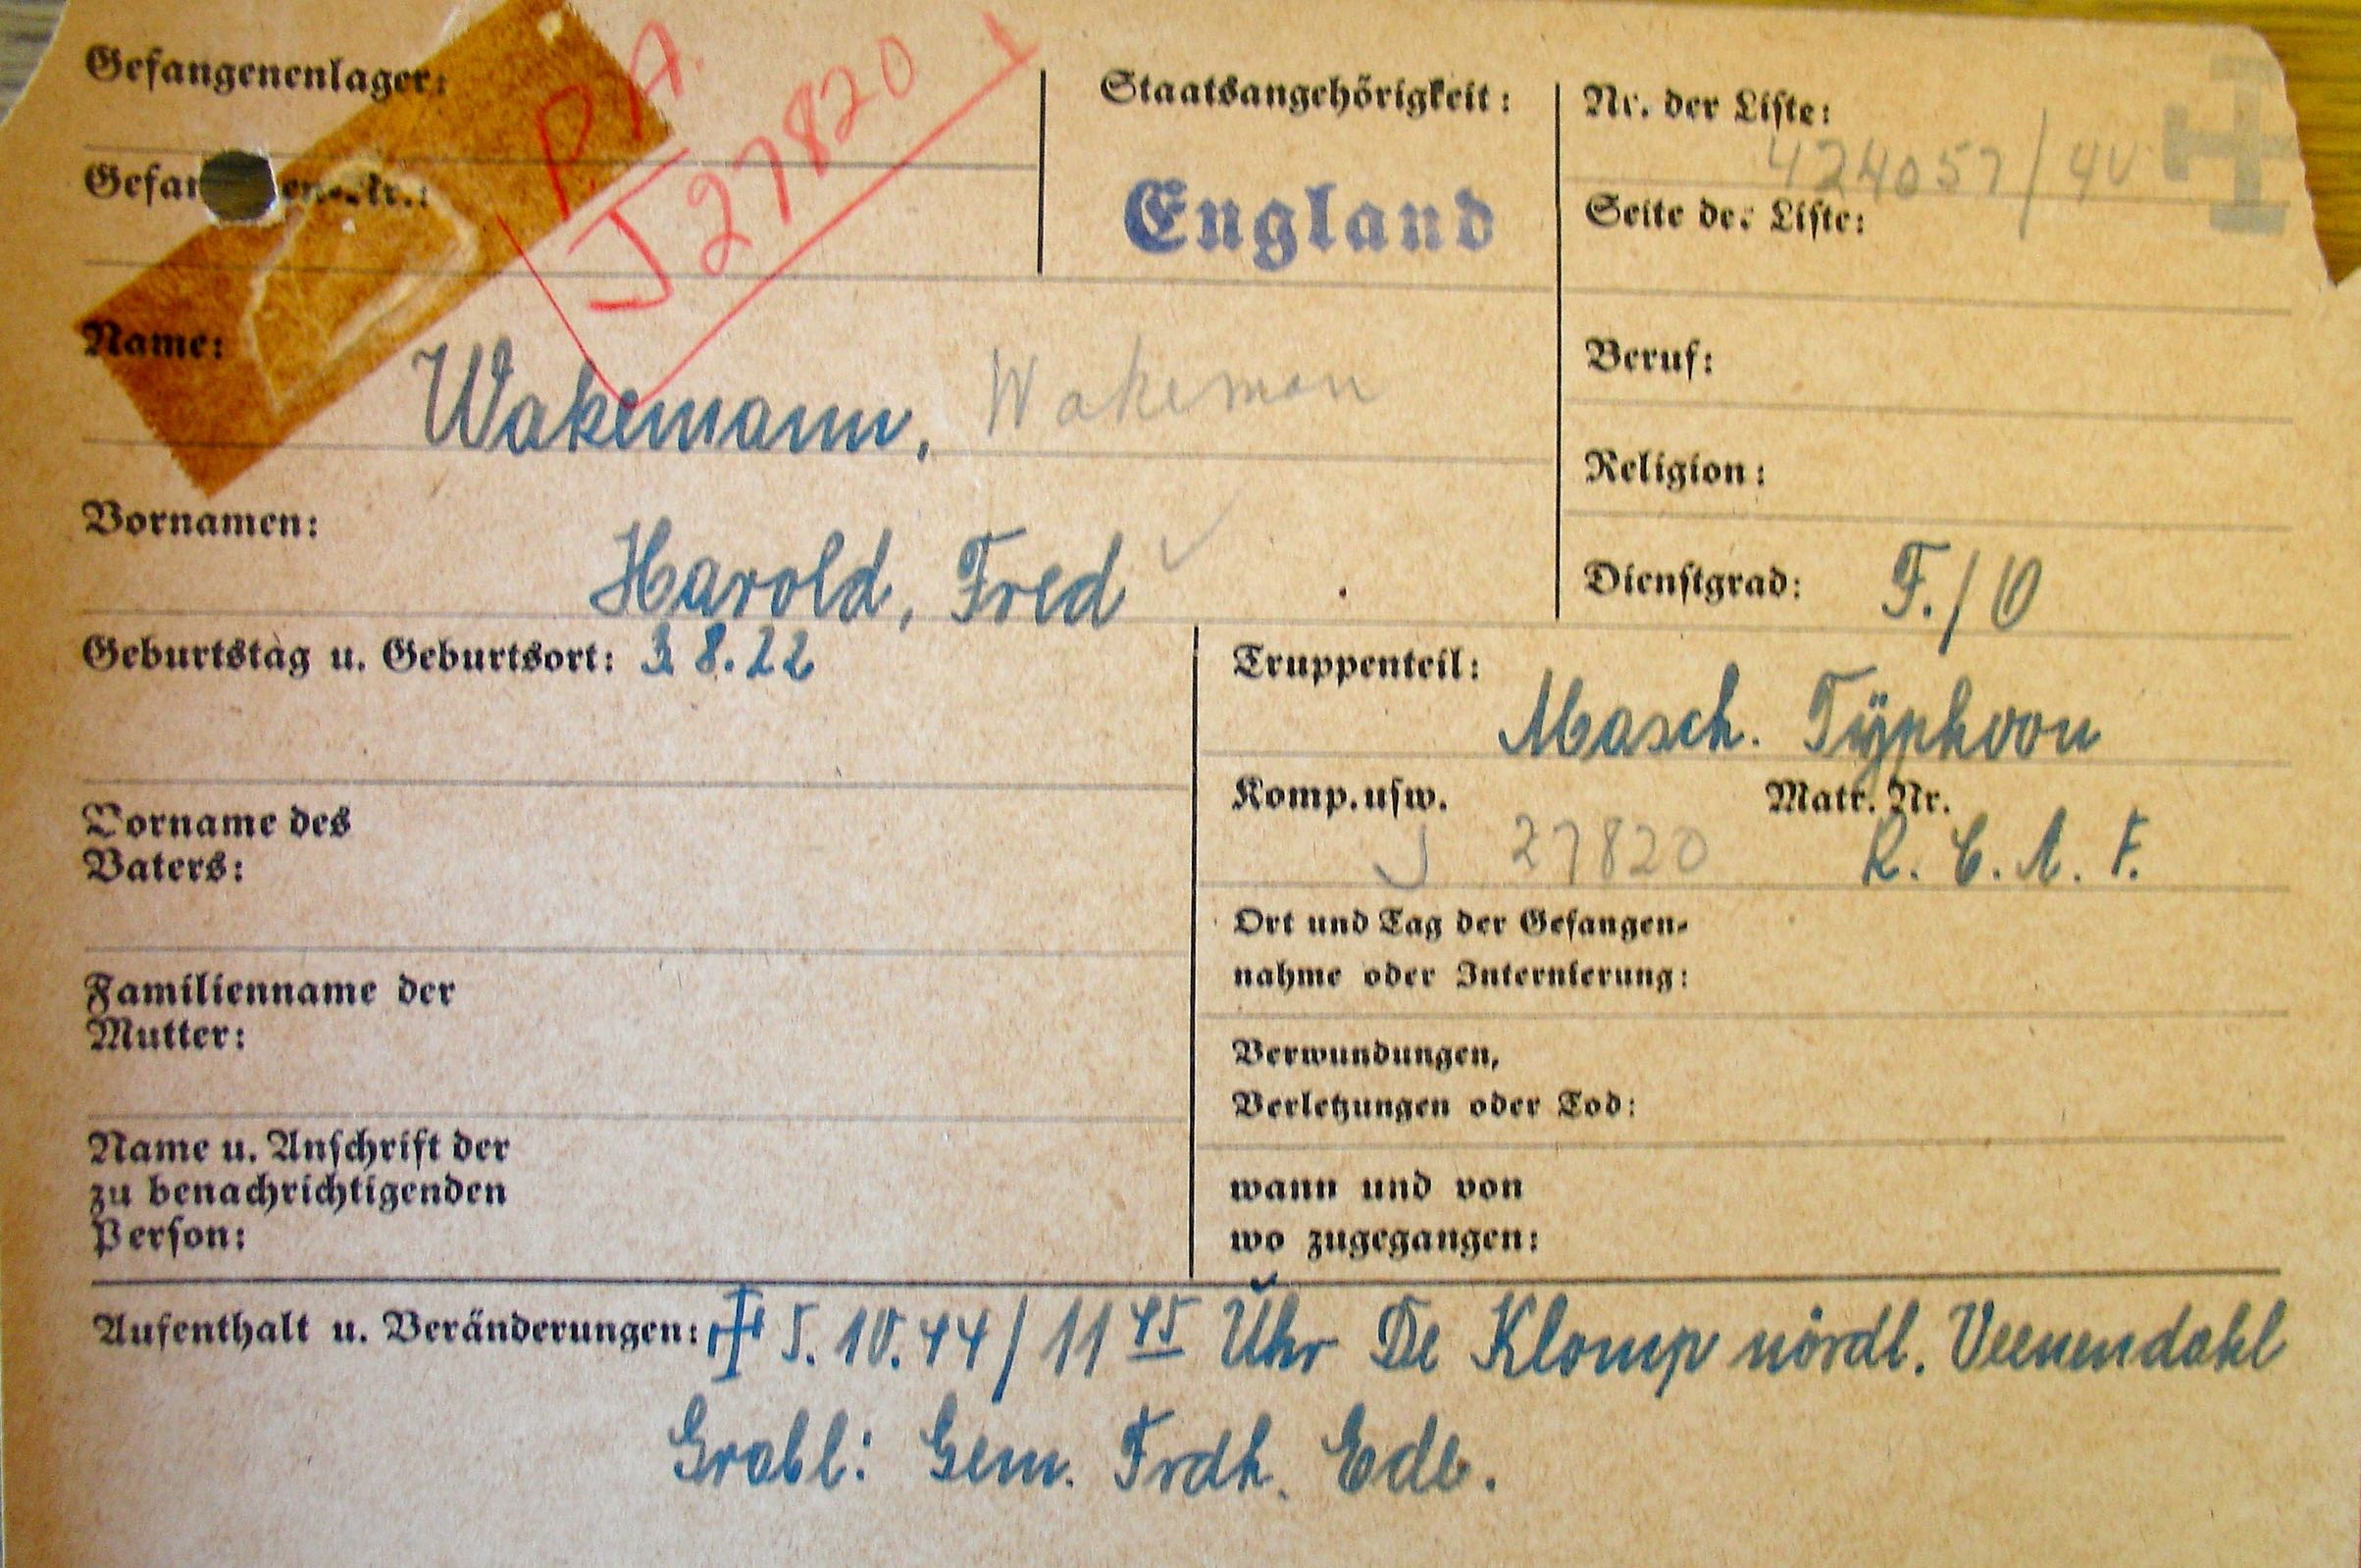 Gefangenenlager:
P.A.
J 27820
Staatsangehörigkeit:
England
Nr. der Liste:
424057/40
Seite der Liste:
Name:
Wakemann, Wakeman
Beruf:
Religion:
Vornamen:
Harold, Fred
Dienstgrad: F./O
Geburtstag u. Geburtsort: 3.8.22
Truppenteil:
Masch. Typhoon
Komp.usw. Matr. Nr.
J 27820 R. C. A. F.
Vorname des
Vaters:
Ort und Tag der Gefangen-
nahme oder Internierung:
Familienname der
Mutter:
Verwundungen,
Verletzungen oder Tod:
Name u. Anschrift der
zu benachrichtigenden
Person:
wann und von
wo zugegangen:
Aufenthalt u. Veränderungen: 5.10.44/11 45 Uhr De Klomp nördl. Veenendahl
Grabl: Gem. Frdh. Ede.